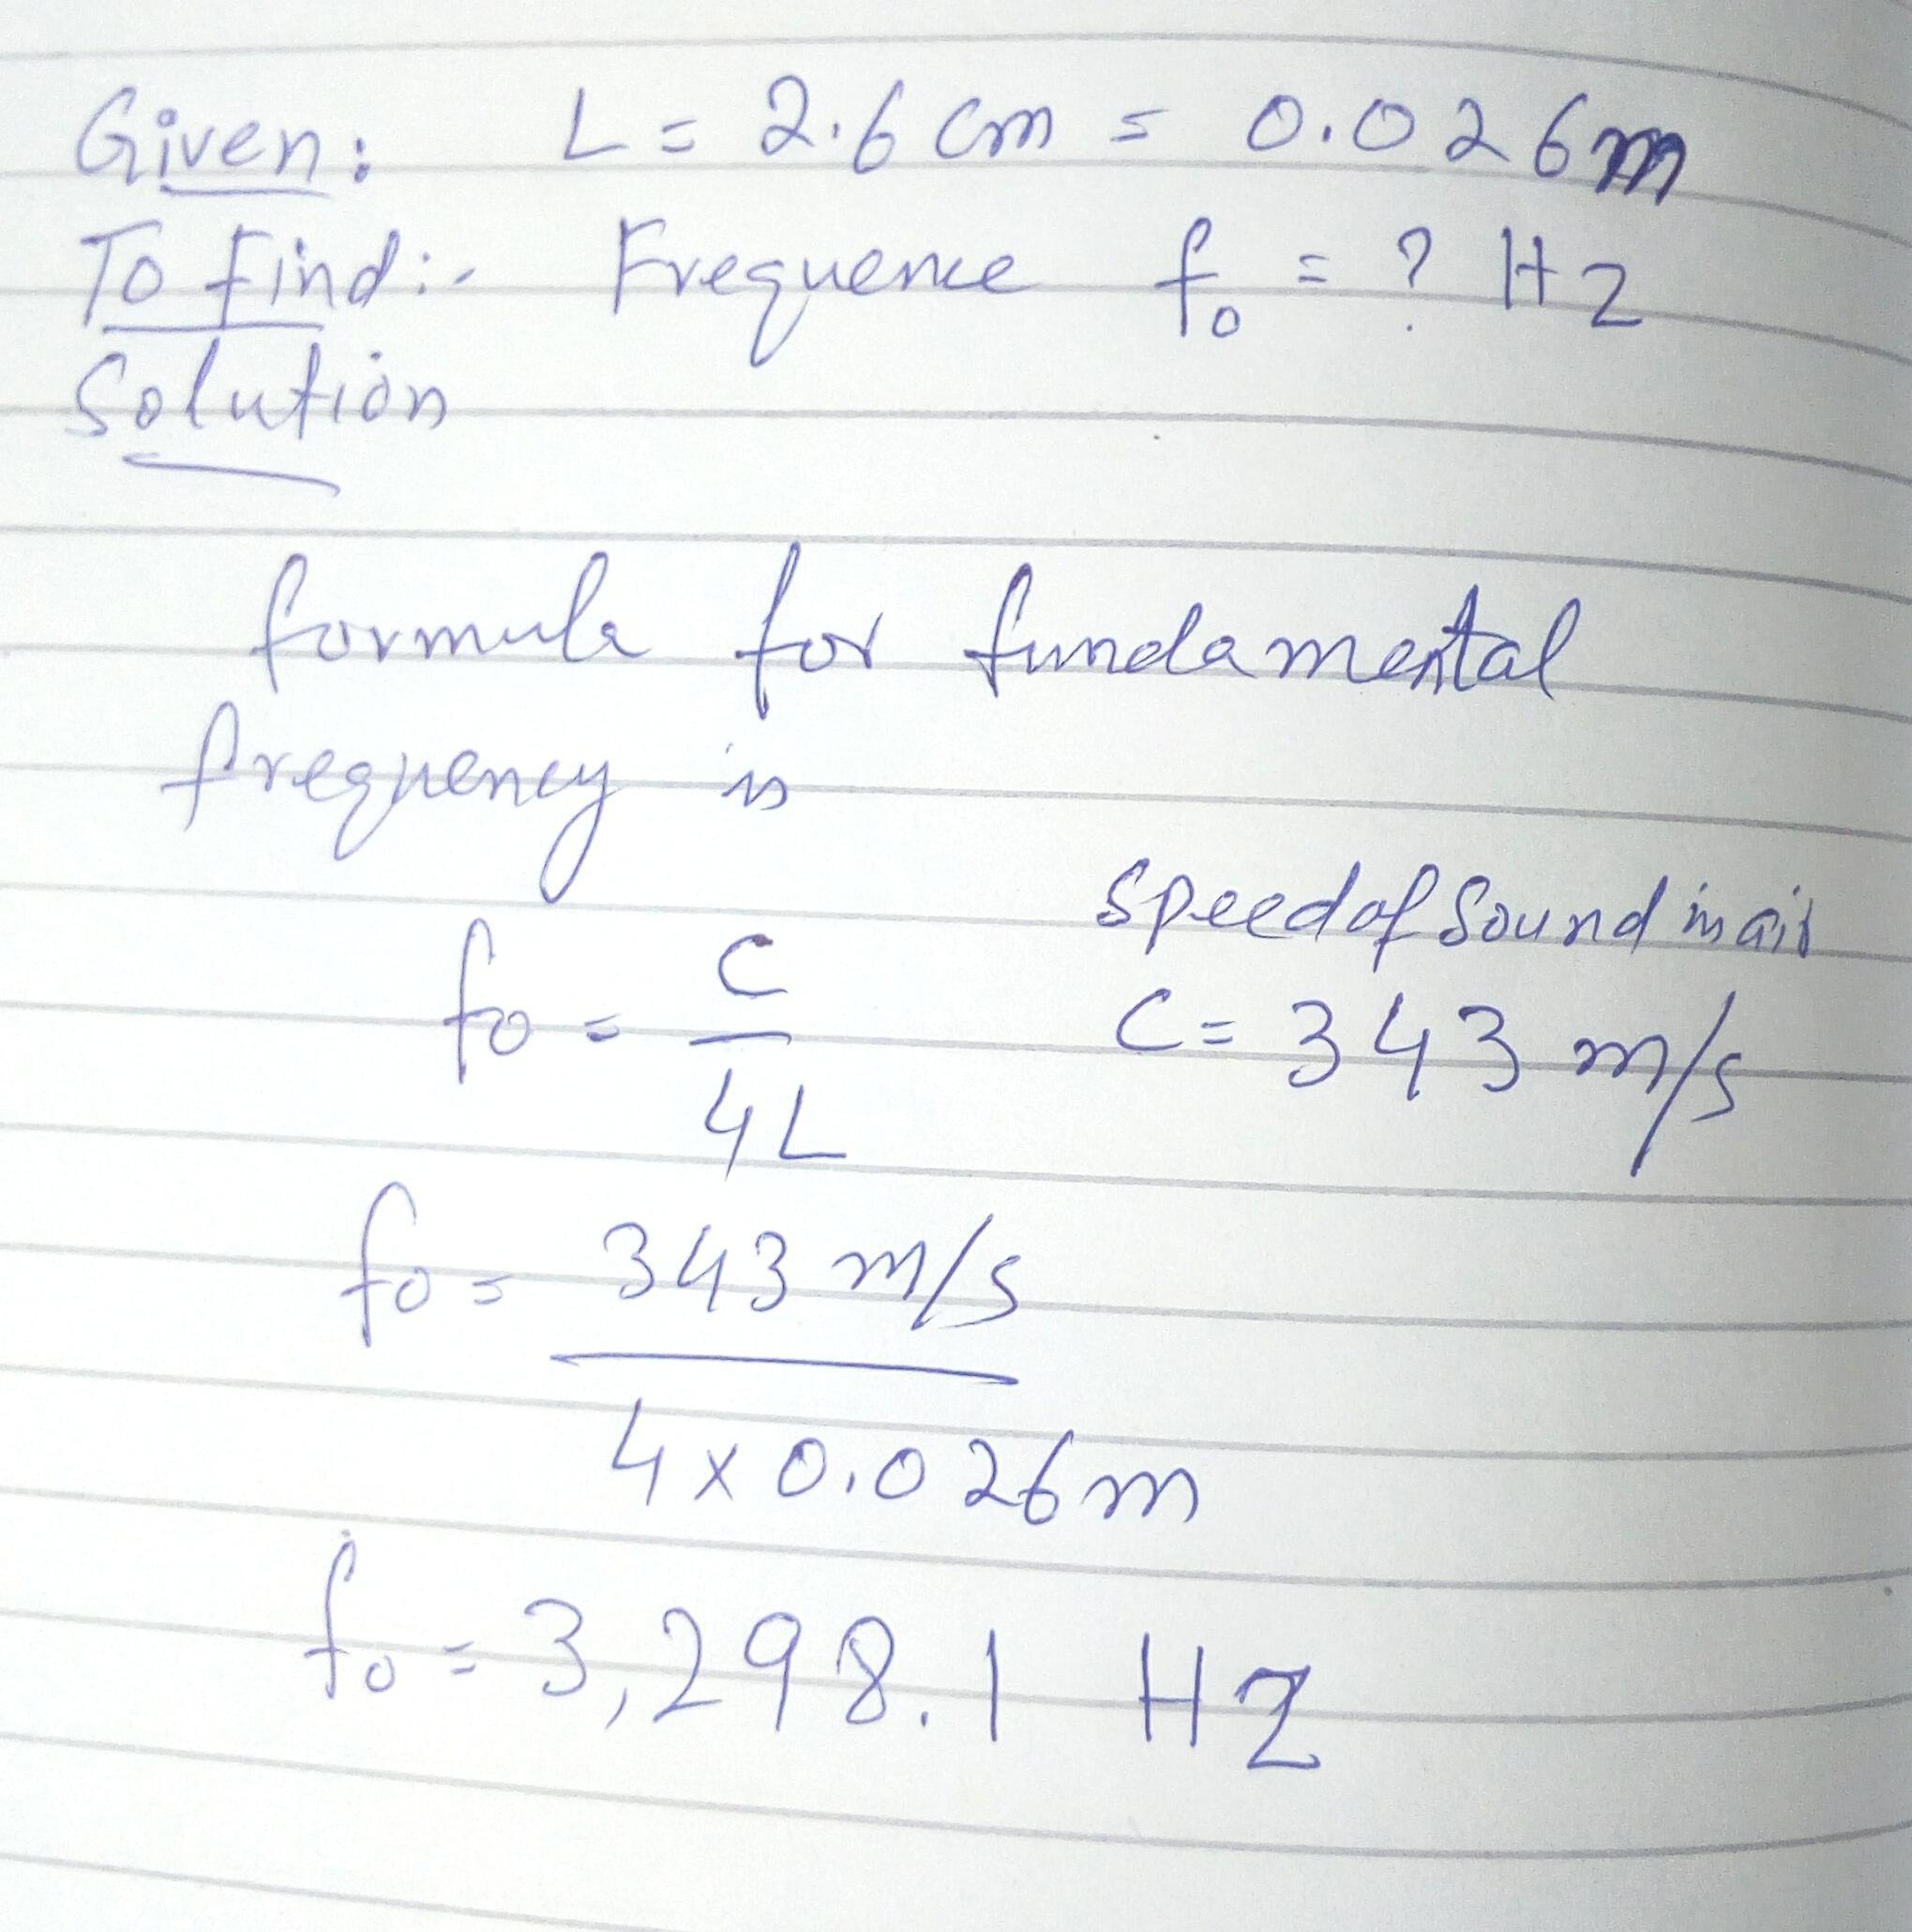 Given: L = 2.6 cm = 0.026m
To find:- Frequence f₀ = ? Hz
Solution
formula for fundamental
frequency is
speed of sound in air
f₀ = C/4L C = 343 m/s
f₀ = 343 m/s
4 x 0.026m
f₀ = 3,298.1 Hz